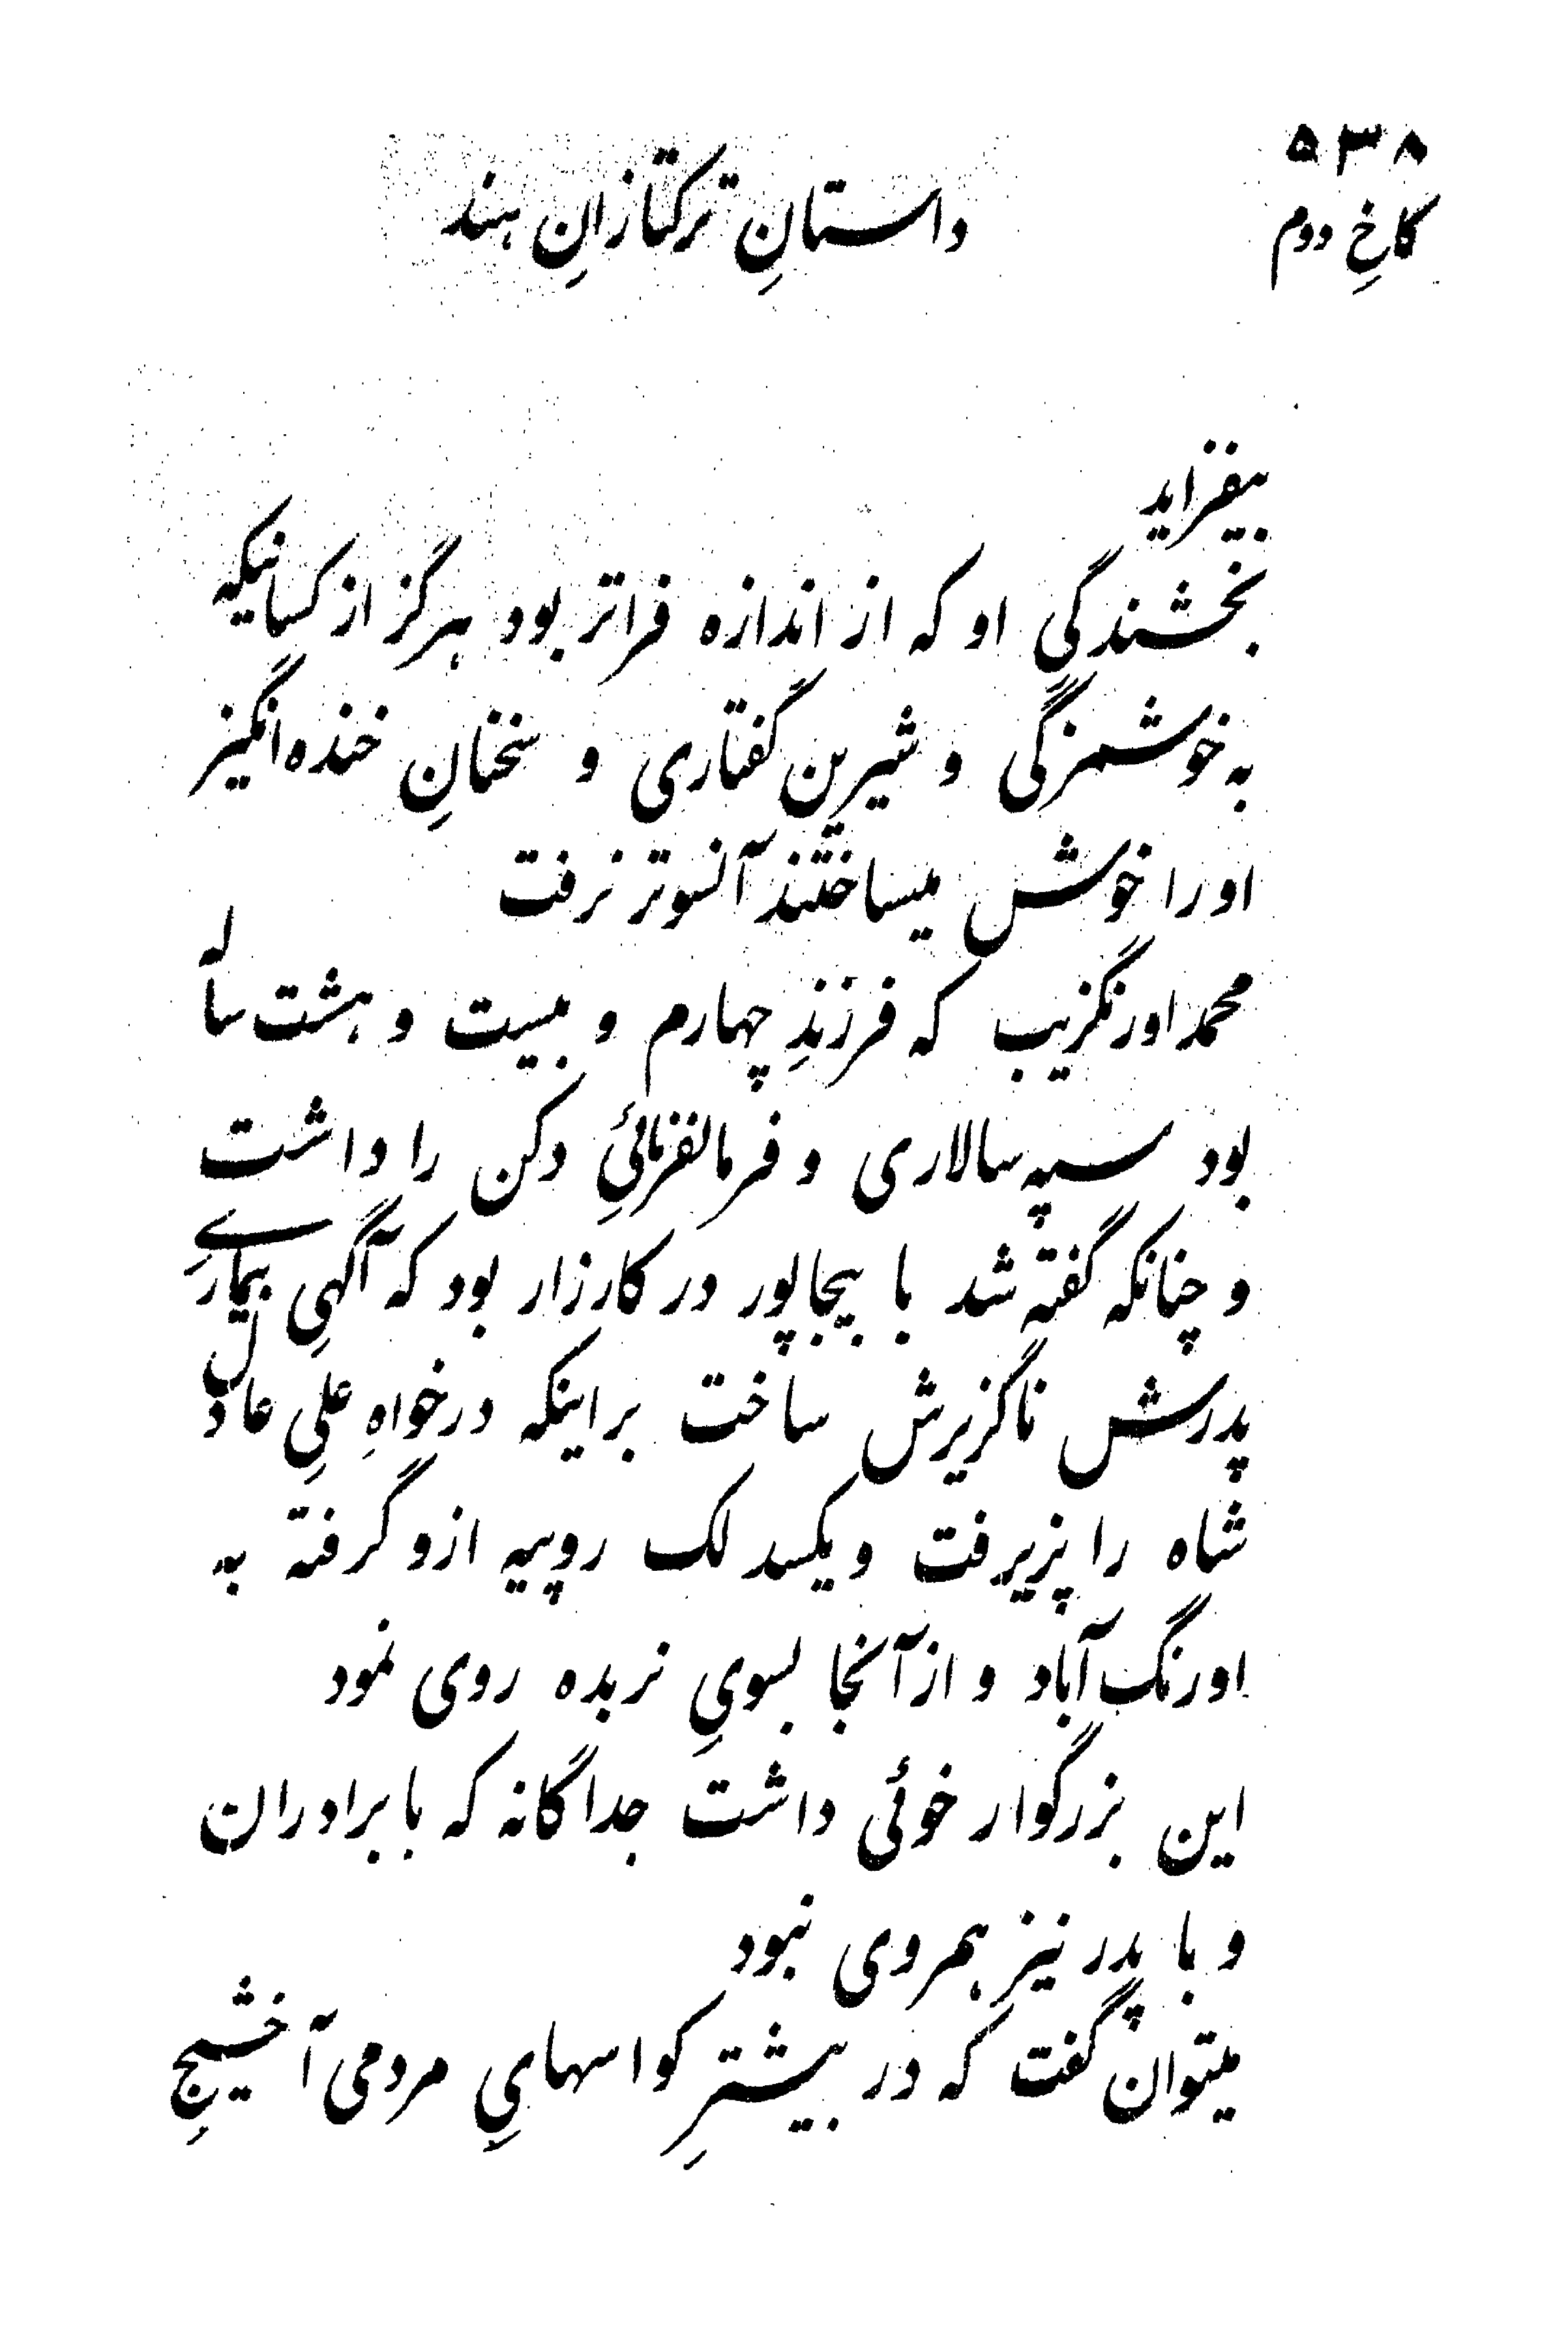 ۵۳۸
کاخِ دوم
داستانِ ترکتازانِ هند
بیفزاید
بخشندگیِ او که از اندازه فراتر بود هرگز از کسانیکه
به خوشمزگی و شیرین گفتاری و سخنانِ خنده‌انگیز
او را خوش میساختند آنسوتر نرفت
محمد اورنگزیب که فرزندِ چهارم و بیست و هشت ساله
بود سپه سالاری و فرمانفرمائیِ دکن را داشت
و چنانکه گفته شد با بیجاپور در کارزار بود که آگهیِ بیماریِ
پدرش ناگزیرش ساخت براینکه درخواهِ علیِ عادل
شاه را پزیرفت و یکسد لک روپیه ازو گرفته به
اورنگ‌آباد و از آنجا بسویِ نربده روی نمود
این بزرگوار خوئی داشت جداگانه که با برادران
و با پدر نیز همروی نبود
میتوان گفت که در بیشترِ کواسهایِ مردمی آخشیجِ